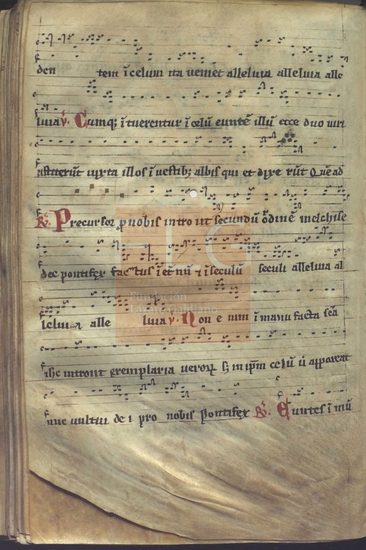 den tem ī celum ita veniet alleluia alleluia alle
luia ꝟ. Cumq; ītuerentur ī celū euntē illū ecce duo uiri
astiterūt iuxta illos ī uestib; albis qui et dixe rūt Quē ad
℟. Precursor ꝓ nobis intro iit secundū ordinē melchise
dec pontifex factus ī et nū ⁊ ī seculū seculi alleluia al
leluia alle luia ꝟ. Non e nim ī manu facta sc̄a
ih̅c introiit exemplaria ueroꝝ sꝫ in ip̄m celū ū appareat
uultui de i pro nobis Pontifex ℟. Euntes ī mū